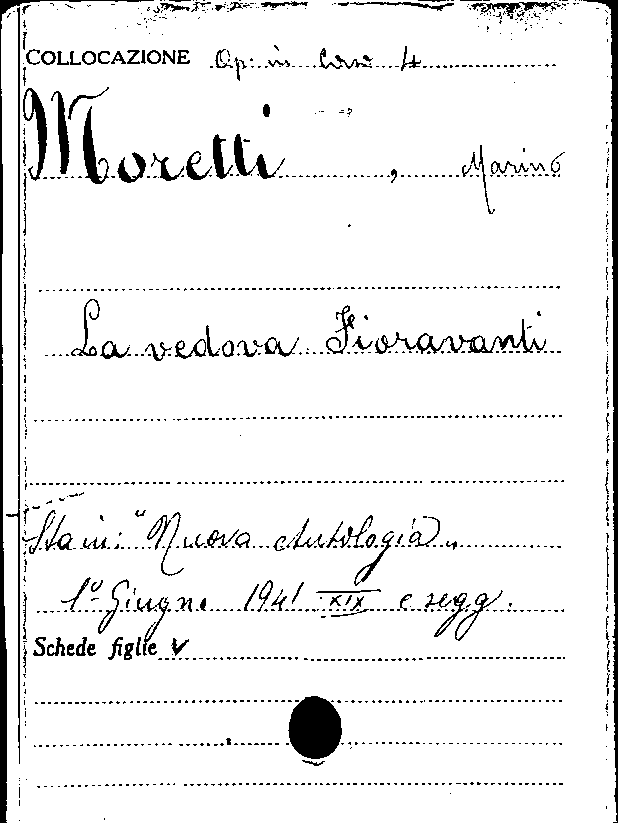 COLLOCAZIONE Op: in Corso 4
Moretti, Marino
La vedova Fioravanti
Sta in: "Nuova Antologia„
1º Giugno 1941 XIX e segg.
Schede figlie v